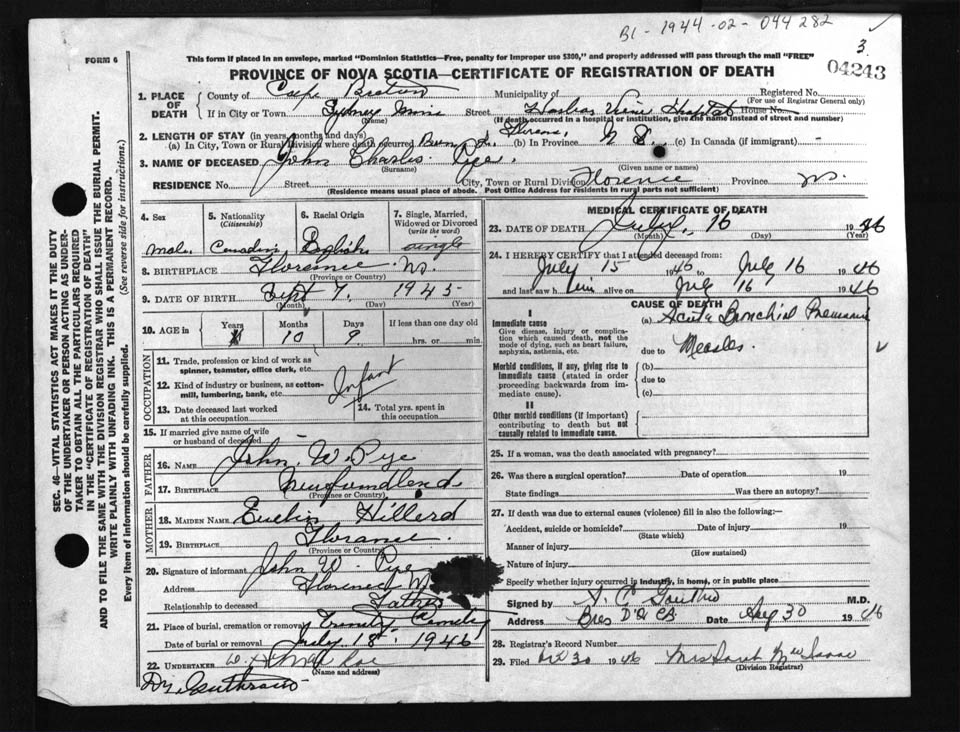 B1-1944-02-044282
3.
04243
FORM 6
This form if placed in an envelope, marked "Dominion Statistics—Free, penalty for improper use $300," and properly addressed will pass through the mail "FREE"
PROVINCE OF NOVA SCOTIA—CERTIFICATE OF REGISTRATION OF DEATH
SEC. 46—VITAL STATISTICS ACT MAKES IT THE DUTY
OF THE UNDERTAKER OR PERSON ACTING AS UNDER-
TAKER TO OBTAIN ALL THE PARTICULARS REQUIRED
IN THE "CERTIFICATE OF REGISTRATION OF DEATH"
AND TO FILE THE SAME WITH THE DIVISION REGISTRAR WHO SHALL ISSUE THE BURIAL PERMIT.
WRITE PLAINLY WITH UNFADING INK. THIS IS A PERMANENT RECORD.
Every item of information should be carefully supplied. (See reverse side for instructions.)
1. PLACE OF DEATH
County of Cape Breton Municipality of Registered No.
(For use of Registrar General only)
If in City or Town Sydney Mines Street Harbor View Hospital House No.
(Name) (If death occurred in a hospital or institution, give the name instead of street and number)
2. LENGTH OF STAY (in years, months and days)
(a) In City, Town or Rural Division where death occurred Born (b) In Province N S. (c) In Canada (if immigrant)
3. NAME OF DECEASED John Charles Pye.
(Surname) (Given name or names)
RESIDENCE No. Street City, Town or Rural Division Florence Province NS.
(Residence means usual place of abode. Post Office Address for residents in rural parts not sufficient)
4. Sex 5. Nationality (Citizenship) 6. Racial Origin 7. Single, Married, Widowed or Divorced (write the word)
Male Canadian English single
8. BIRTHPLACE Florence NS.
(Province or Country)
9. DATE OF BIRTH Sept 7. 1945
(Month) (Day) (Year)
10. AGE in Years Months Days If less than one day old
10 9 hrs. or min.
OCCUPATION
11. Trade, profession or kind of work as
spinner, teamster, office clerk, etc.
12. Kind of industry or business, as cotton-
mill, lumbering, bank, etc.
Infant
13. Date deceased last worked
at this occupation
14. Total yrs. spent in
this occupation
15. If married give name of wife
or husband of deceased
FATHER
16. NAME John. W. Pye
17. BIRTHPLACE Newfundlend
(Province or Country)
MOTHER
18. MAIDEN NAME Hillerd
19. BIRTHPLACE Florance.
(Province or Country)
20. Signature of informant John W. Pye
Address Florence
Relationship to deceased Father
21. Place of burial, cremation or removal Trinity
Date of burial or removal July 18. 1946
22. UNDERTAKER
(Name and address)
MEDICAL CERTIFICATE OF DEATH
23. DATE OF DEATH July, 16 1946
(Month) (Day) (Year)
24. I HEREBY CERTIFY that I attended deceased from:
July 15 1946 to July 16 1946
and last saw him alive on July 16 1946
CAUSE OF DEATH
I
Immediate cause
Give disease, injury or complica-
tion which caused death, not the
mode of dying, such as heart failure,
asphyxia, asthenia, etc.
(a) Acute Bronchial Pneumonia
due to Measles.
Morbid conditions, if any, giving rise to
immediate cause (stated in order
proceeding backwards from im-
mediate cause).
(b)
due to
(c)
II
Other morbid conditions (if important)
contributing to death but not
causally related to immediate cause.
25. If a woman, was the death associated with pregnancy?
26. Was there a surgical operation? Date of operation 19
State findings Was there an autopsy?
27. If death was due to external causes (violence) fill in also the following:
Accident, suicide or homicide? Date of injury 19
(State which)
Manner of injury
(How sustained)
Nature of injury
Specify whether injury occurred in industry, in home, or in public place
Signed by M.D.
Address Date Aug 30 1946
28. Registrar's Record Number
29. Filed 30 1946 Mrs Sarah
(Division Registrar)